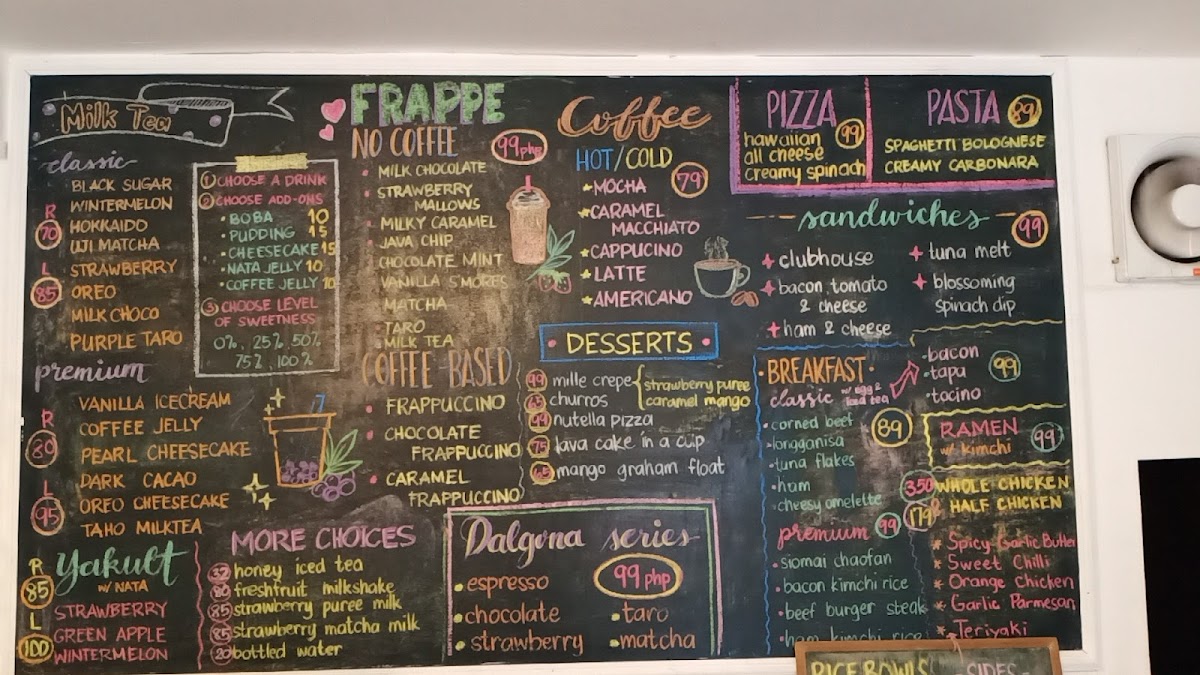 Milk Tea
classic
BLACK SUGAR
WINTERMELON
R
70
HOKKAIDO
UJI MATCHA
L
85
STRAWBERRY
OREO
MILK CHOCO
PURPLE TARO
premium
VANILLA ICECREAM
R
80
COFFEE JELLY
PEARL CHEESECAKE
DARK CACAO
L
95
OREO CHEESECAKE
TAHO MILKTEA
Yakult
W/ NATA
R
85
STRAWBERRY
L
100
GREEN APPLE
WINTERMELON
1 CHOOSE A DRINK
2 CHOOSE ADD-ONS
• BOBA 10
• PUDDING 15
• CHEESECAKE 15
• NATA JELLY 10
• COFFEE JELLY 10
3 CHOOSE LEVEL
OF SWEETNESS
0%, 25%, 50%
75%, 100%
MORE CHOICES
honey iced tea
80 freshfruit milkshake
85 strawberry puree milk
85 strawberry matcha milk
20 bottled water
FRAPPE
NO COFFEE
99php
• MILK CHOCOLATE
• STRAWBERRY
MALLOWS
• MILKY CARAMEL
• JAVA CHIP
• CHOCOLATE MINT
VANILLA S'MORES
MATCHA
TARO
MILK TEA
COFFEE-BASED
• FRAPPUCCINO
• CHOCOLATE
FRAPPUCCINO
• CARAMEL
FRAPPUCCINO
Coffee
HOT/COLD
79
MOCHA
CARAMEL
MACCHIATO
CAPPUCINO
LATTE
AMERICANO
• DESSERTS •
99 mille crepe
churros
strawberry puree
caramel mango
99 nutella pizza
75 lava cake in a cup
mango graham float
Dalgona series
99 php
• espresso
• chocolate
• strawberry
• taro
• matcha
PIZZA
99
hawaiian
all cheese
creamy spinach
PASTA
89
SPAGHETTI BOLOGNESE
CREAMY CARBONARA
sandwiches
99
clubhouse
bacon, tomato
& cheese
ham & cheese
tuna melt
blossoming
spinach dip
• BREAKFAST •
classic
w/ egg &
iced tea
89
• corned beef
• longganisa
• tuna flakes
• ham
cheesy omelette
• bacon
• tapa
• tocino
99
premium 99
• siomai chaofan
• bacon kimchi rice
• beef burger steak
• ham kimchi rice
RAMEN
w/ kimchi
99
350 WHOLE CHICKEN
179 HALF CHICKEN
* Spicy Garlic Butter
* Sweet Chilli
* Orange Chicken
* Garlic Parmesan
* Teriyaki
RICE BOWLS
- SIDES -